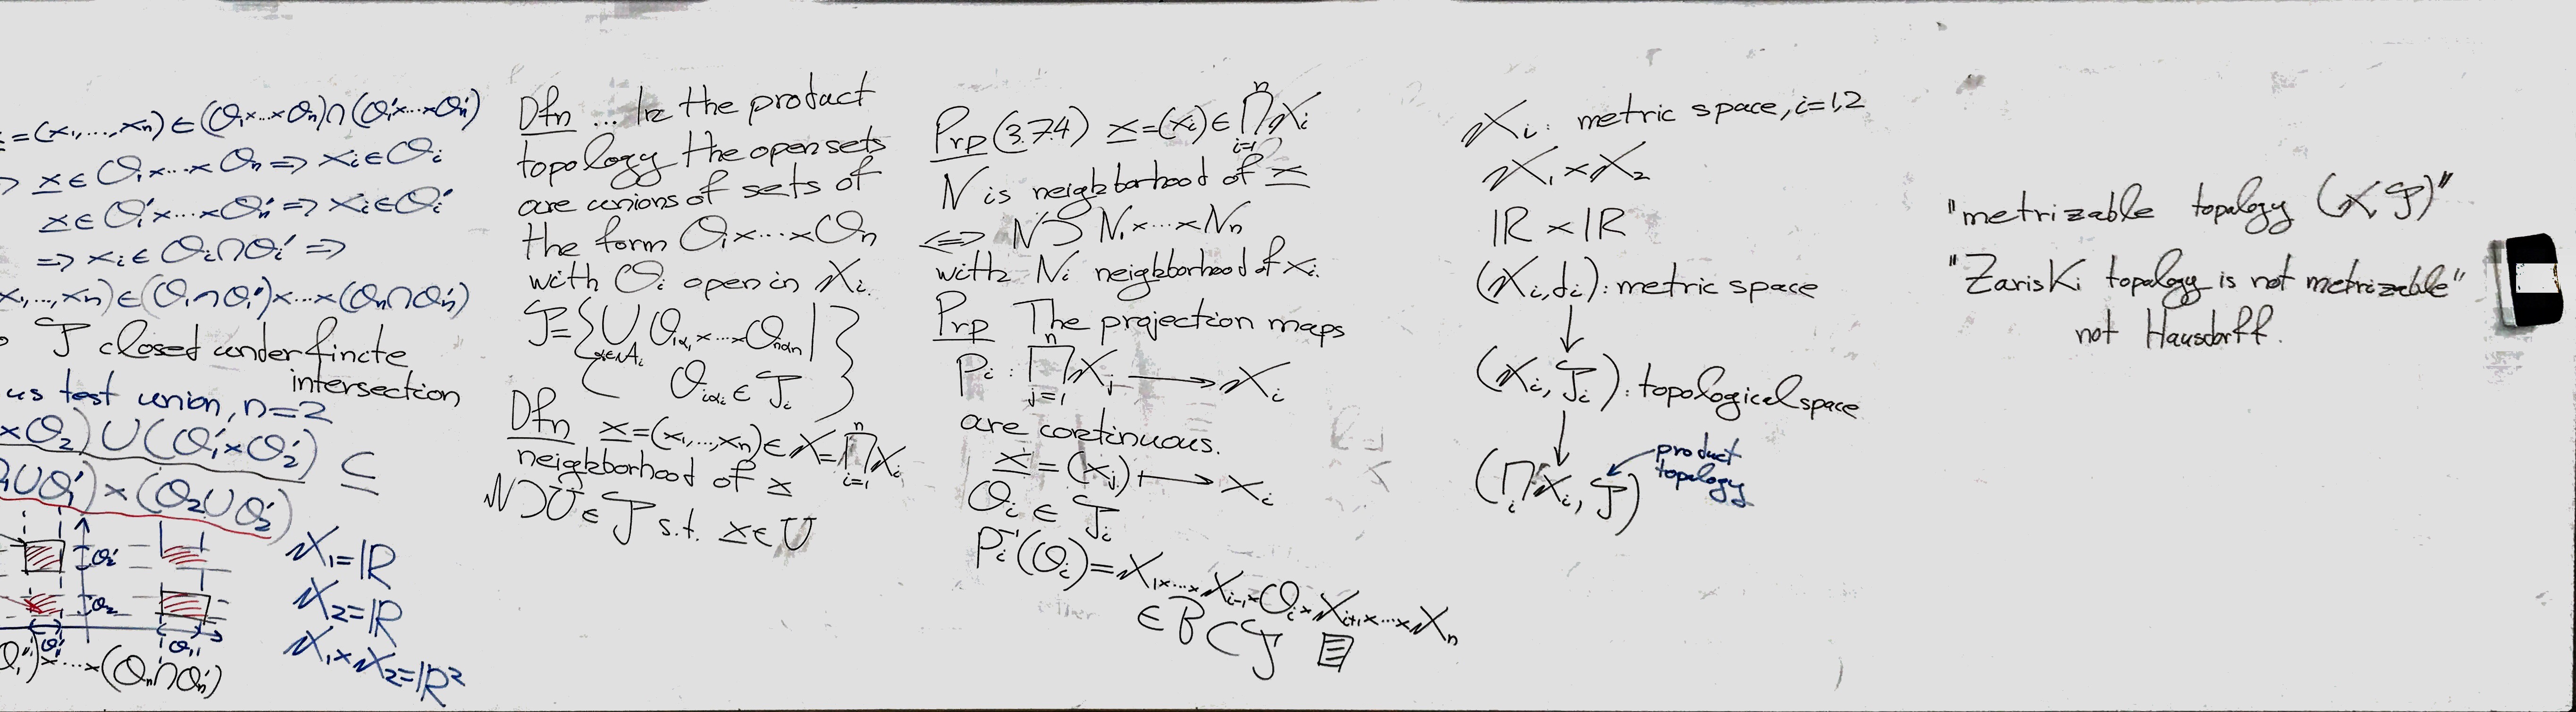 =(x₁,...,xₙ) ∈ (O₁×...×Oₙ)∩(O₁'×...×Oₙ')
⇒ x ∈ O₁×...×Oₙ ⇒ xᵢ ∈ Oᵢ
x ∈ O₁'×...×Oₙ' ⇒ xᵢ ∈ Oᵢ'
⇒ xᵢ ∈ Oᵢ∩Oᵢ' ⇒
x₁,...,xₙ) ∈ (O₁∩O₁')×...×(Oₙ∩Oₙ')
𝒯 closed under finite
intersection
us test union, n=2
×O₂) ∪ (O₁'×O₂') ⊆
₁∪O₁') × (O₂∪O₂')
O₂'
O₂
O₁'
O₁
X₁=ℝ
X₂=ℝ
X₁×X₂=ℝ²
O₁')×...×(Oₙ∩Oₙ')
Dfn ... In the product
topology the open sets
are unions of sets of
the form O₁×...×Oₙ
with Oᵢ open in Xᵢ.
𝒯={∪ O₁α₁×...×Oₙαₙ | α∈Aᵢ
Oᵢαᵢ ∈ 𝒯ᵢ}
Dfn x=(x₁,...,xₙ) ∈ X=∏ⁿᵢ₌₁Xᵢ
neighborhood of x
N⊃U∈𝒯 s.t. x∈U
Prp (3.7.4) x=(xᵢ)∈∏ⁿᵢ₌₁Xᵢ
N is neighborhood of x
⇔ N⊃N₁×...×Nₙ
with Nᵢ neighborhood of xᵢ.
Prp The projection maps
pᵢ: ∏ⁿⱼ₌₁Xⱼ ⟶ Xᵢ
are continuous.
x=(xⱼ) ⟼ xᵢ
Oᵢ ∈ 𝒯ᵢ
pᵢ⁻¹(Oᵢ)=X₁×...×Xᵢ₋₁×Oᵢ×Xᵢ₊₁×...×Xₙ
∈ B ⊂ 𝒯
Xᵢ: metric space, i=1,2
X₁×X₂
ℝ×ℝ
(Xᵢ,dᵢ): metric space
↓
(Xᵢ,𝒯ᵢ): topological space
↓
product
topology
(∏ᵢXᵢ, 𝒯)
"metrizable topology (X,𝒯)"
"Zariski topology is not metrizable"
not Hausdorff.